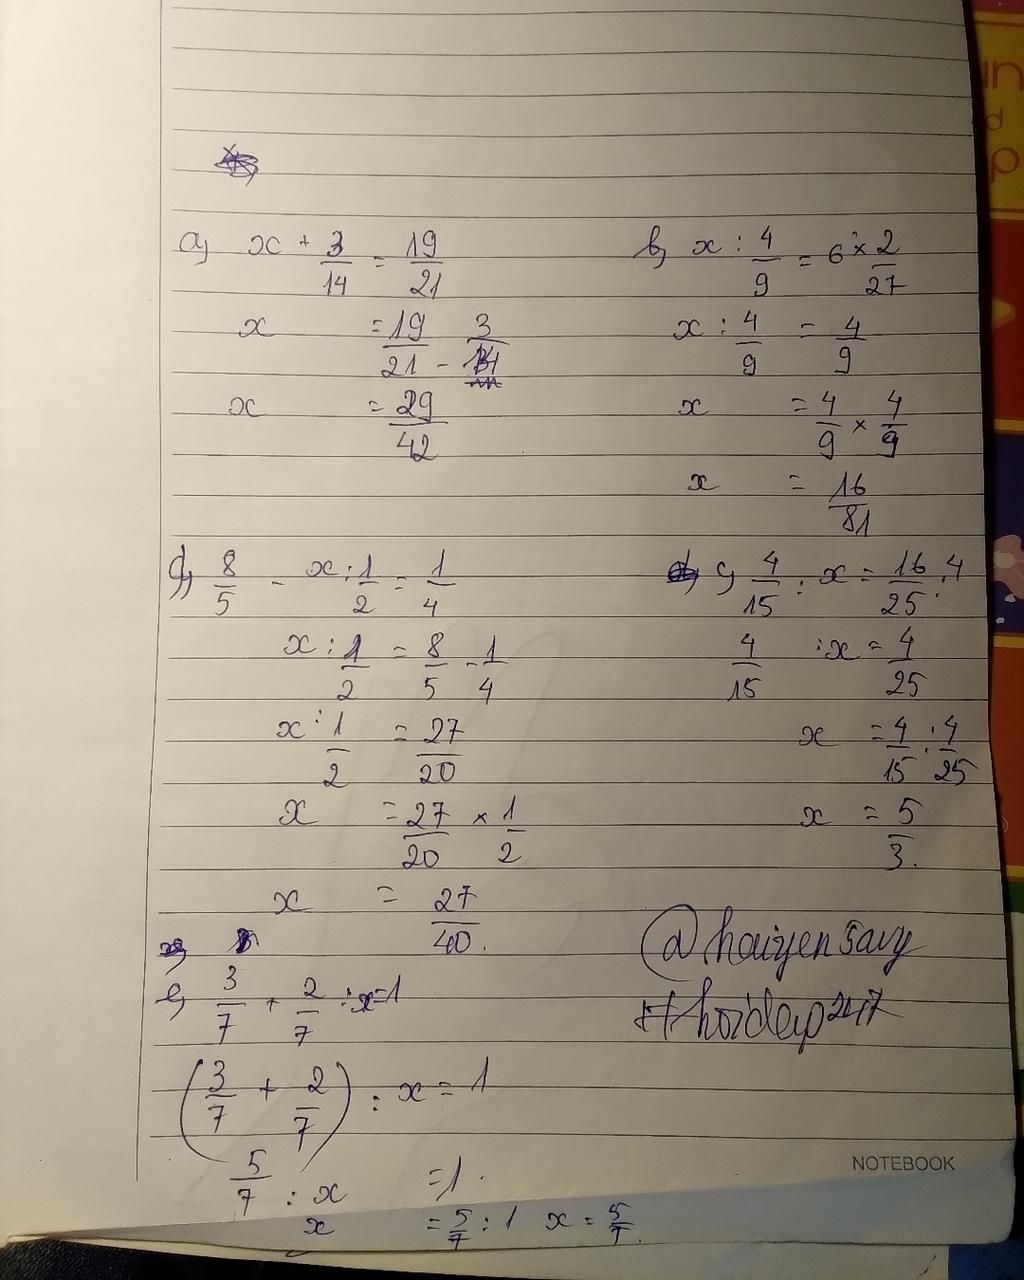 a) x + 3/14 = 19/21
x = 19/21 - 3/14
x = 29/42
b) x : 4/9 = 6 × 2/27
x : 4/9 = 4/9
x = 4/9 × 4/9
x = 16/81
d) 8/5 - x : 1/2 = 1/4
x : 1/2 = 8/5 - 1/4
x : 1/2 = 27/20
x = 27/20 × 1/2
x = 27/40.
c) 4/15 : x = 16/25 : 4
4/15 : x = 4/25
x = 4/15 : 4/25
x = 5/3.
e) 3/7 + 2/7 : x = 1
(3/7 + 2/7) : x = 1
5/7 : x = 1.
x = 5/7 : 1 x = 5/7.
@haiyensavy
#hoidap247
NOTEBOOK
un
d
p